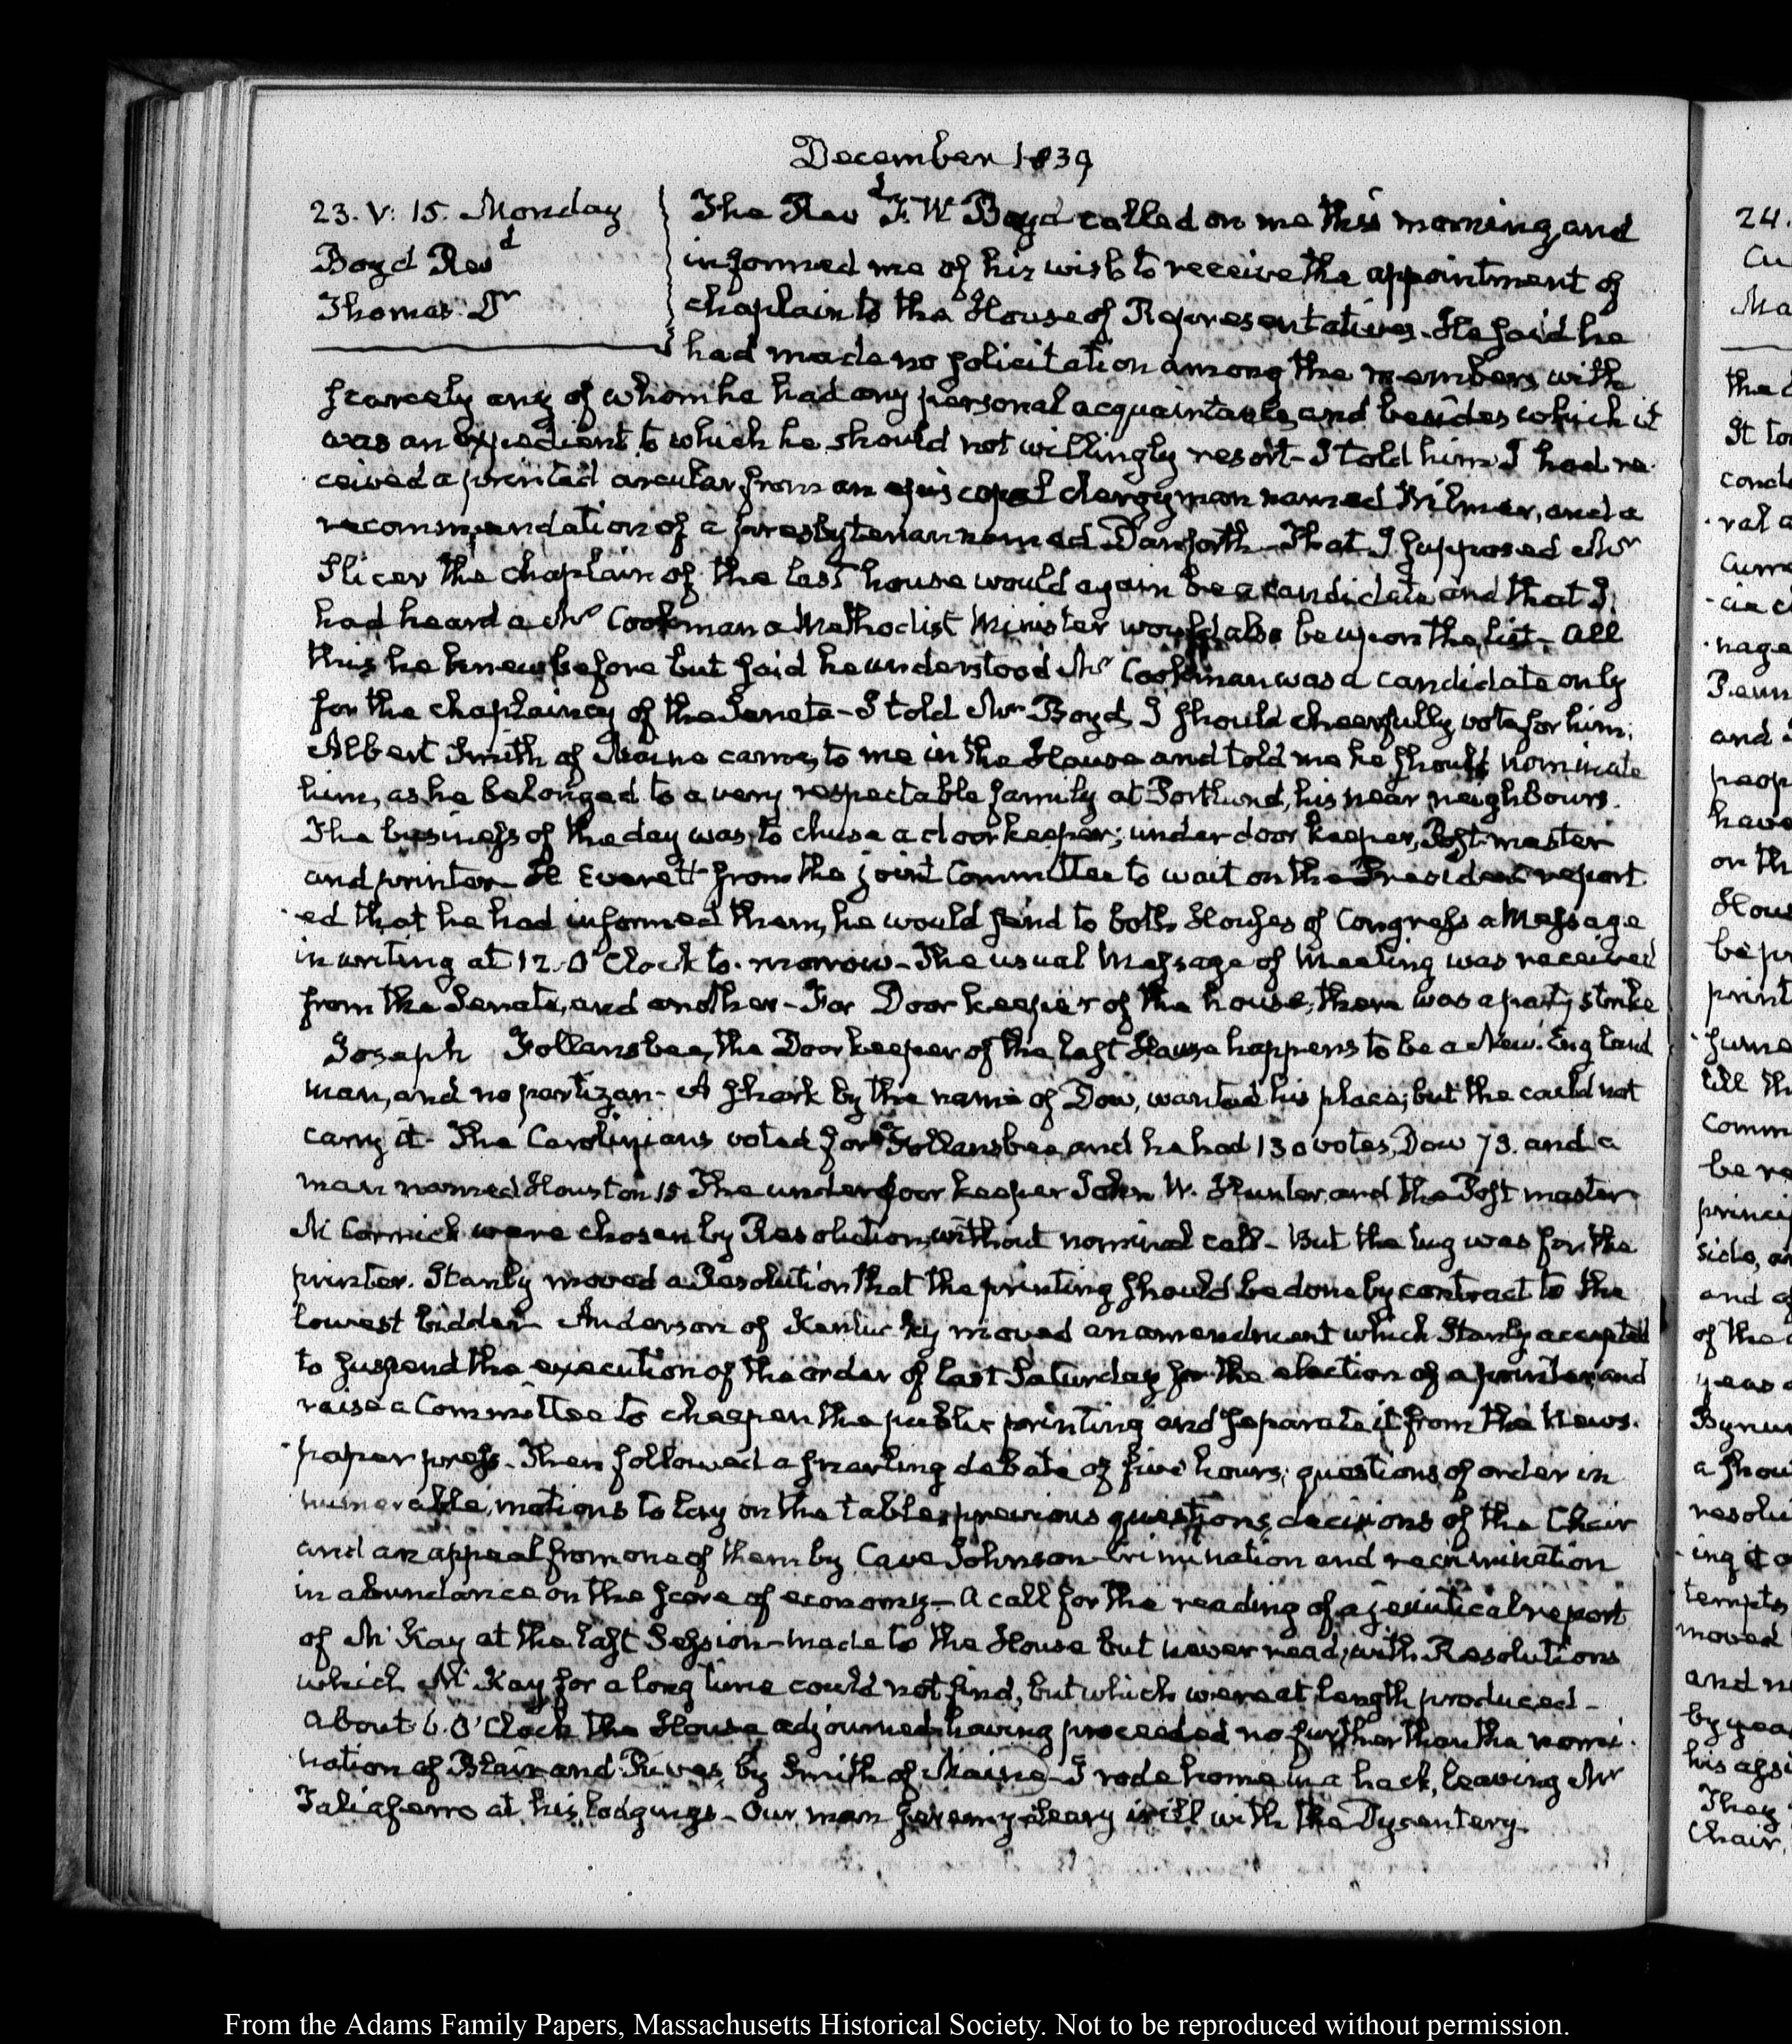 December 1839
23. V: 15. Monday
Boyd Revd
Thomas Dr
The Revd F. W Boyd called on me this morning, and
informed me of his wish to receive the appointment of
chaplain to the House of Representatives. He said he
had made no solicitation among the members with
scarcely any of whom he had any personal acquaintance, and besides which it
was an expedient to which he should not willingly resort - I told him I had re-
ceived a printed circular from an episcopal clergyman named Wilmer, and a
recommendation of a presbyterian named Danforth - That I supposed Mr
Slicer the chaplain of the last house would again be a candidate and that I
had heard a Mr Cookman a Methodist Minister would also be upon the list - All
this he knew before but said he understood Mr Cookman was a candidate only
for the chaplaincy of the Senate - I told Mr Boyd, I should cheerfully vote for him;
Albert Smith of Maine came to me in the House and told me he should nominate
him, as he belonged to a very respectable family at Portland, his near neighbours.
The business of the day was to chuse a door keeper; under door keeper, Post-master
and printer - H Everett from the joint Committee to wait on the President report
-ed that he had informed them, he would send to both Houses of Congress a Message
in writing at 12. O'Clock to-morrow - The usual Message of Meeting was received
from the Senate, and another - For Door keeper of the house, there was a party strike
Joseph Follansbee, the Door keeper of the last House happens to be a New-England
man, and no partizan - A shark by the name of Dow, wanted his place; but the could not
carry it - The Carolinians voted for Follansbee, and he had 130 votes, Dow 73. and a
man named Houston 15 The under door keeper John W. Hunter, and the Post master
McCormick were chosen by Resolution, without nominal call - But the tug was for the
printer. Stanly moved a Resolution that the printing should be done by contract to the
lowest bidder - Anderson of Kentucky moved an amendment which Stanly accepted
to suspend the execution of the order of last Saturday for the election of a printer, and
raise a Committee to cheapen the public printing and separate it from the News-
-paper press - Then followed a snarling debate of five hours; questions of order in
numerable, motions to lay on the table, previous questions, decisions of the Chair
and an appeal from one of them by Cave Johnson - Crimination and recrimination
in abundance on the score of economy - A call for the reading of a jesuitical report
of McKay at the last Session - made to the House but never read, with Resolutions
which McKay for a long time could not find, but which were at length produced -
About 6. O'Clock the House adjourned having proceeded no further than the nomi-
nation of Blair and Rives, by Smith of Maine - I rode home in a hack, leaving Mr
Taliaferro at his lodgings - Our man Jeremy Leary is ill with the Dysentery.
24.
Cu
Ma
the
It to
conde
ral a
Curre
nage
and
peop
have
on th
Hou
be pr
print
till th
Comm
be re
princi
side, an
and
of the
yeas
Bynum
a shou
resolu
ing
tempts
moved
and n
by yea
his
They
Chair,
From the Adams Family Papers, Massachusetts Historical Society. Not to be reproduced without permission.